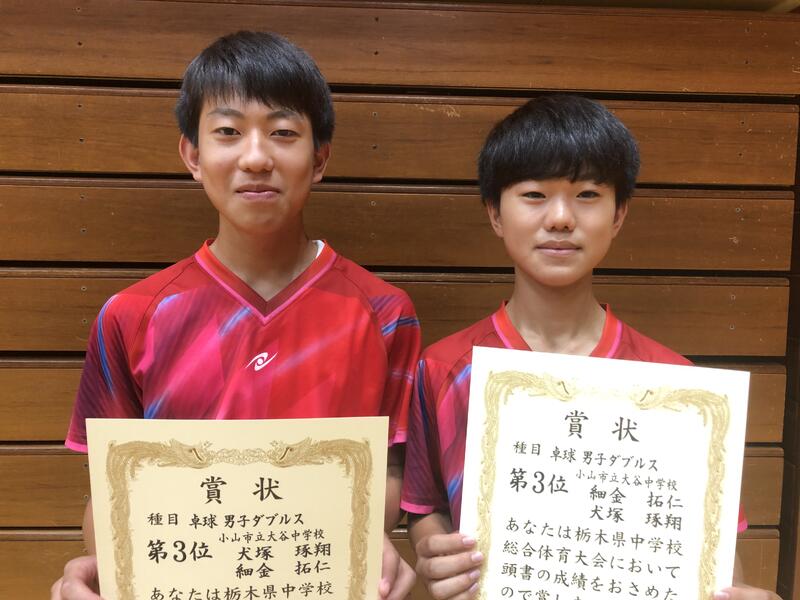 賞状
種目 卓球 男子ダブルス
小山市立大谷中学校
第3位 犬塚 琢翔
細金 拓仁
あなたは栃木県中学校
賞状
種目 卓球 男子ダブルス
小山市立大谷中学校
第3位 細金 拓仁
犬塚 琢翔
あなたは栃木県中学校
総合体育大会において
頭書の成績をおさめた
ので賞し